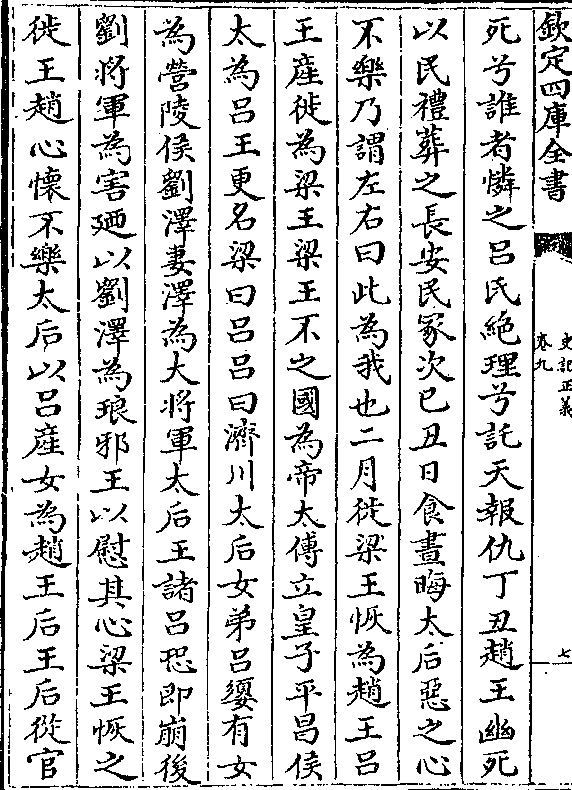 欽定四庫全書
史記正義
卷九
七
死兮誰者憐之呂氏絕理兮託天報仇丁丑趙王幽死
以民禮葬之長安民冢次已丑日食晝晦太后惡之心
不樂乃謂左右曰此為我也二月徙梁王恢為趙王呂
王產徙為梁王梁王不之國為帝太傅立皇子平昌侯
太為呂王更名梁曰呂呂曰濟川太后女弟呂嬃有女
為營陵侯劉澤妻澤為大將軍太后王諸呂恐即崩後
劉將軍為害廼以劉澤為琅邪王以慰其心梁王恢之
徙王趙心懷不樂太后以呂產女為趙王后王后從官